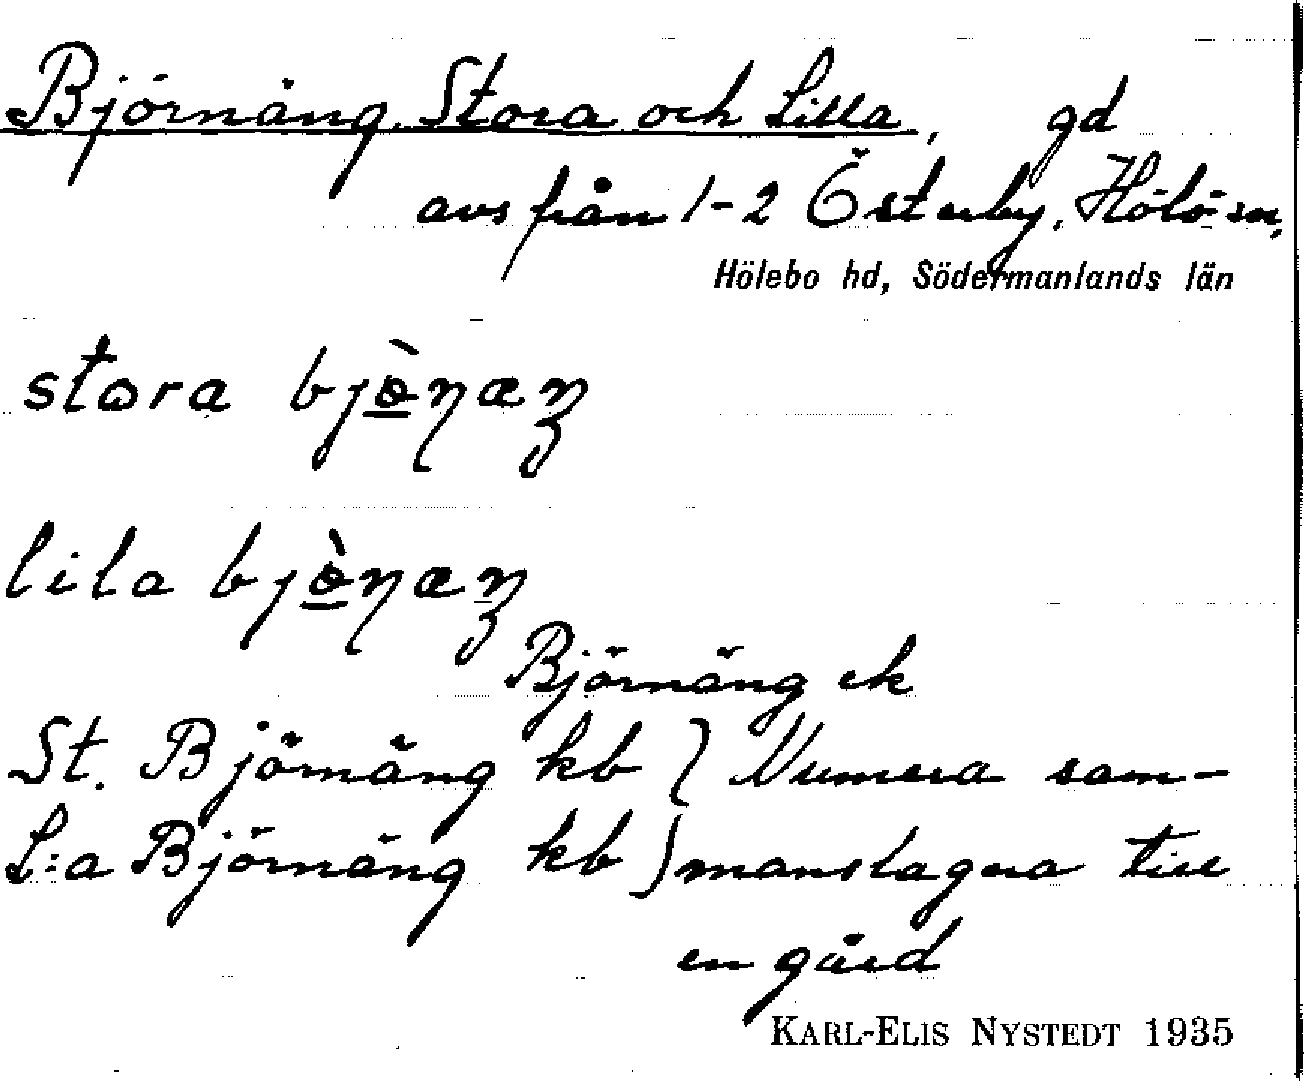 Björnäng, Stora och Lilla, gd
avs från 1-2 Österby, Hölö sn,
Hölebo hd, Södermanlands län
stora
lila
Björnäng ek
St. Björnäng kb } Numera sam-
L:a Björnäng kb } manslagna till
en gård
KARL-ELIS NYSTEDT 1935